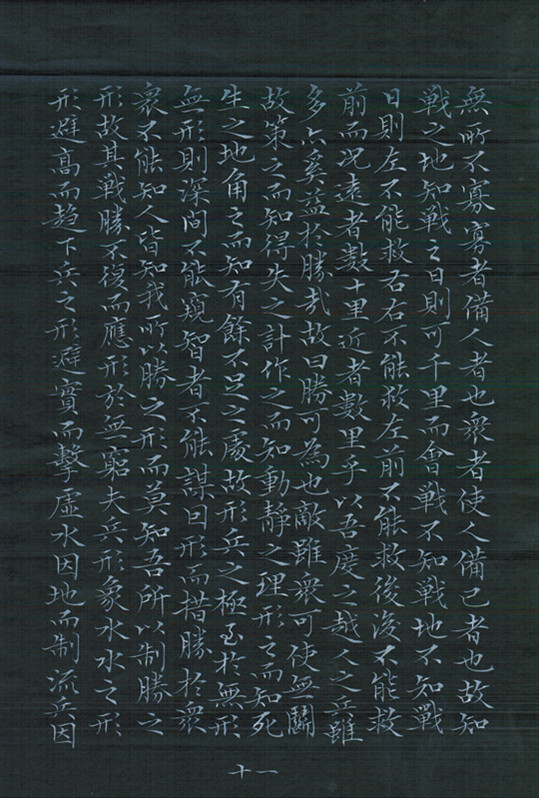 無所不寡寡者備人者也衆者使人備己者也故知
戰之地知戰之日則可千里而會戰不知戰地不知戰
日則左不能救右右不能救左前不能救後後不能救
前而况遠者數十里近者數里乎以吾度之越人之兵雖
多亦奚益於勝哉故曰勝可為也敵雖衆可使無鬭
故策之而知得失之計作之而知動靜之理形之而知死
生之地角之而知有餘不足之處故形兵之極至於無形
無形則深間不能窺智者不能謀因形而措勝於衆
衆不能知人皆知我所以勝之形而莫知吾所以制勝之
形故其戰勝不復而應形於無窮夫兵形象水水之形
形避高而趨下兵之形避實而擊虛水因地而制流兵因
十一